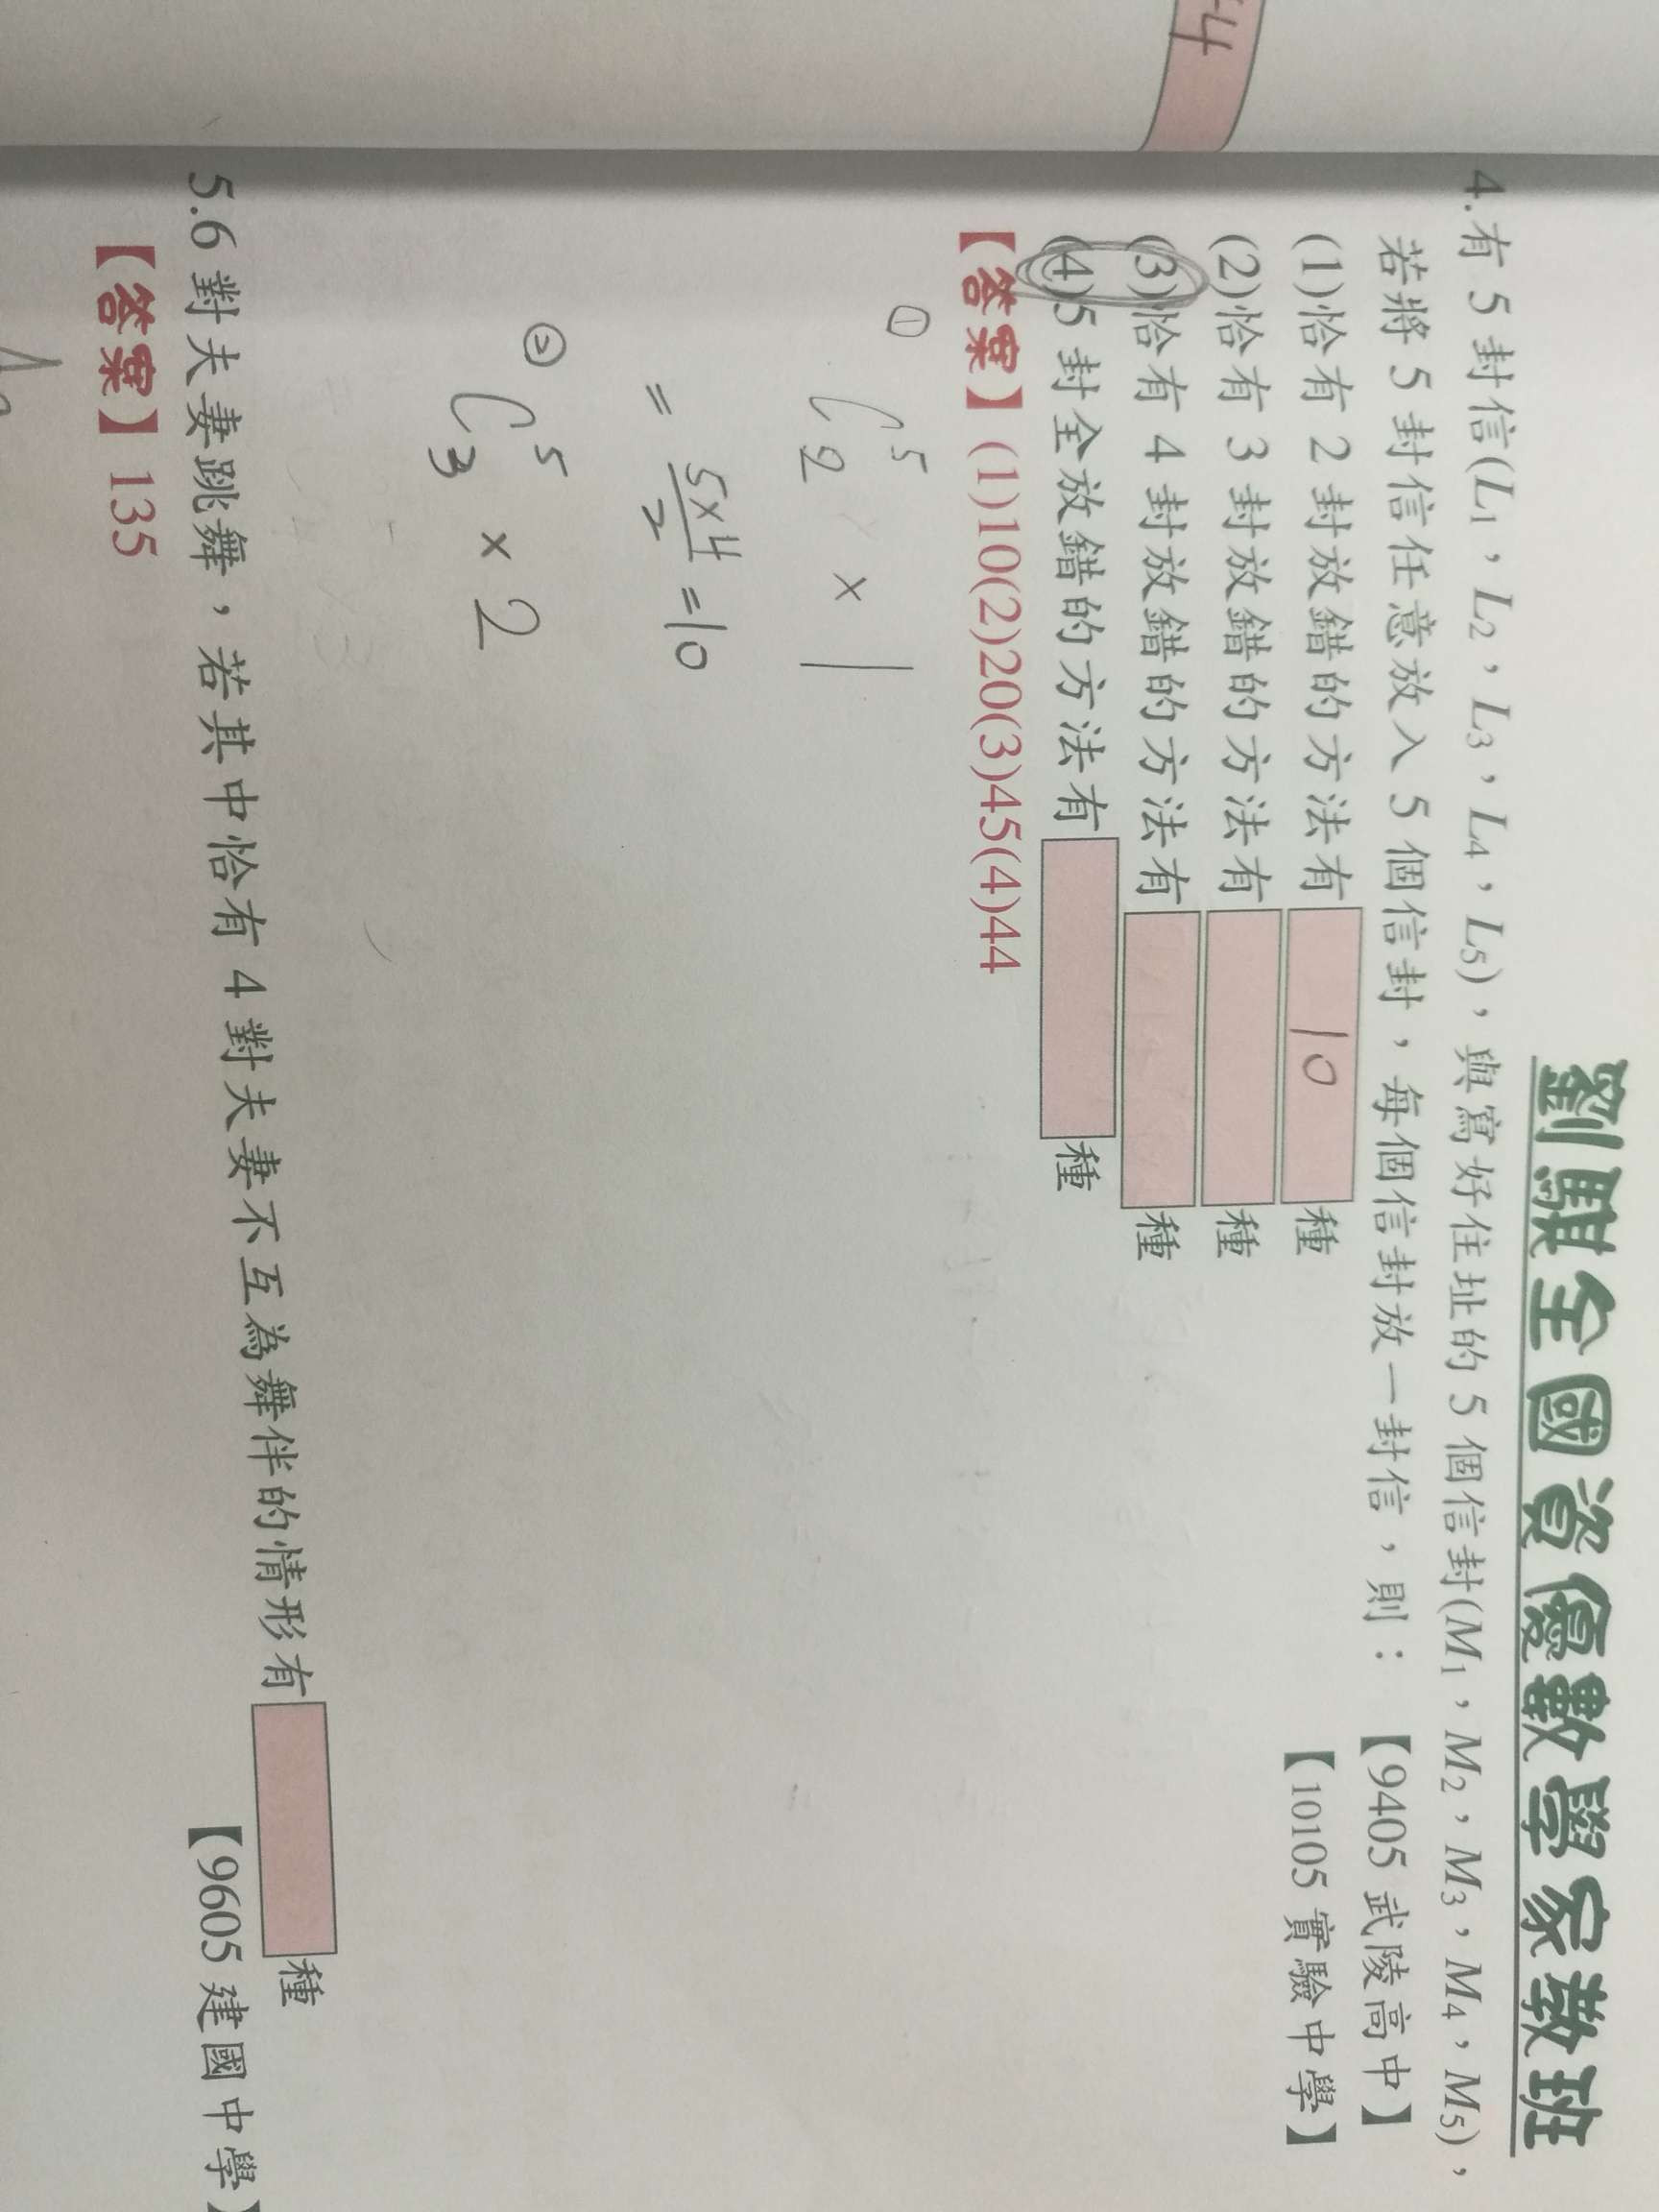 劉騏全國資優數學家教班
-4
4.有 5 封信(L1，L2，L3，L4，L5)，與寫好住址的 5 個信封(M1，M2，M3，M4，M5)，
若將 5 封信任意放入 5 個信封，每個信封放一封信，則： 【9405 武陵高中】
(1)恰有 2 封放錯的方法有 10 種 【10105 實驗中學】
(2)恰有 3 封放錯的方法有 種
(3)恰有 4 封放錯的方法有 種
(4)5 封全放錯的方法有 種
【答案】(1)10(2)20(3)45(4)44
① C 5 2 × 1
= 5×4/2 = 10
② C 5 3 × 2
5.6 對夫妻跳舞，若其中恰有 4 對夫妻不互為舞伴的情形有 種
【9605 建國中學】
【答案】135